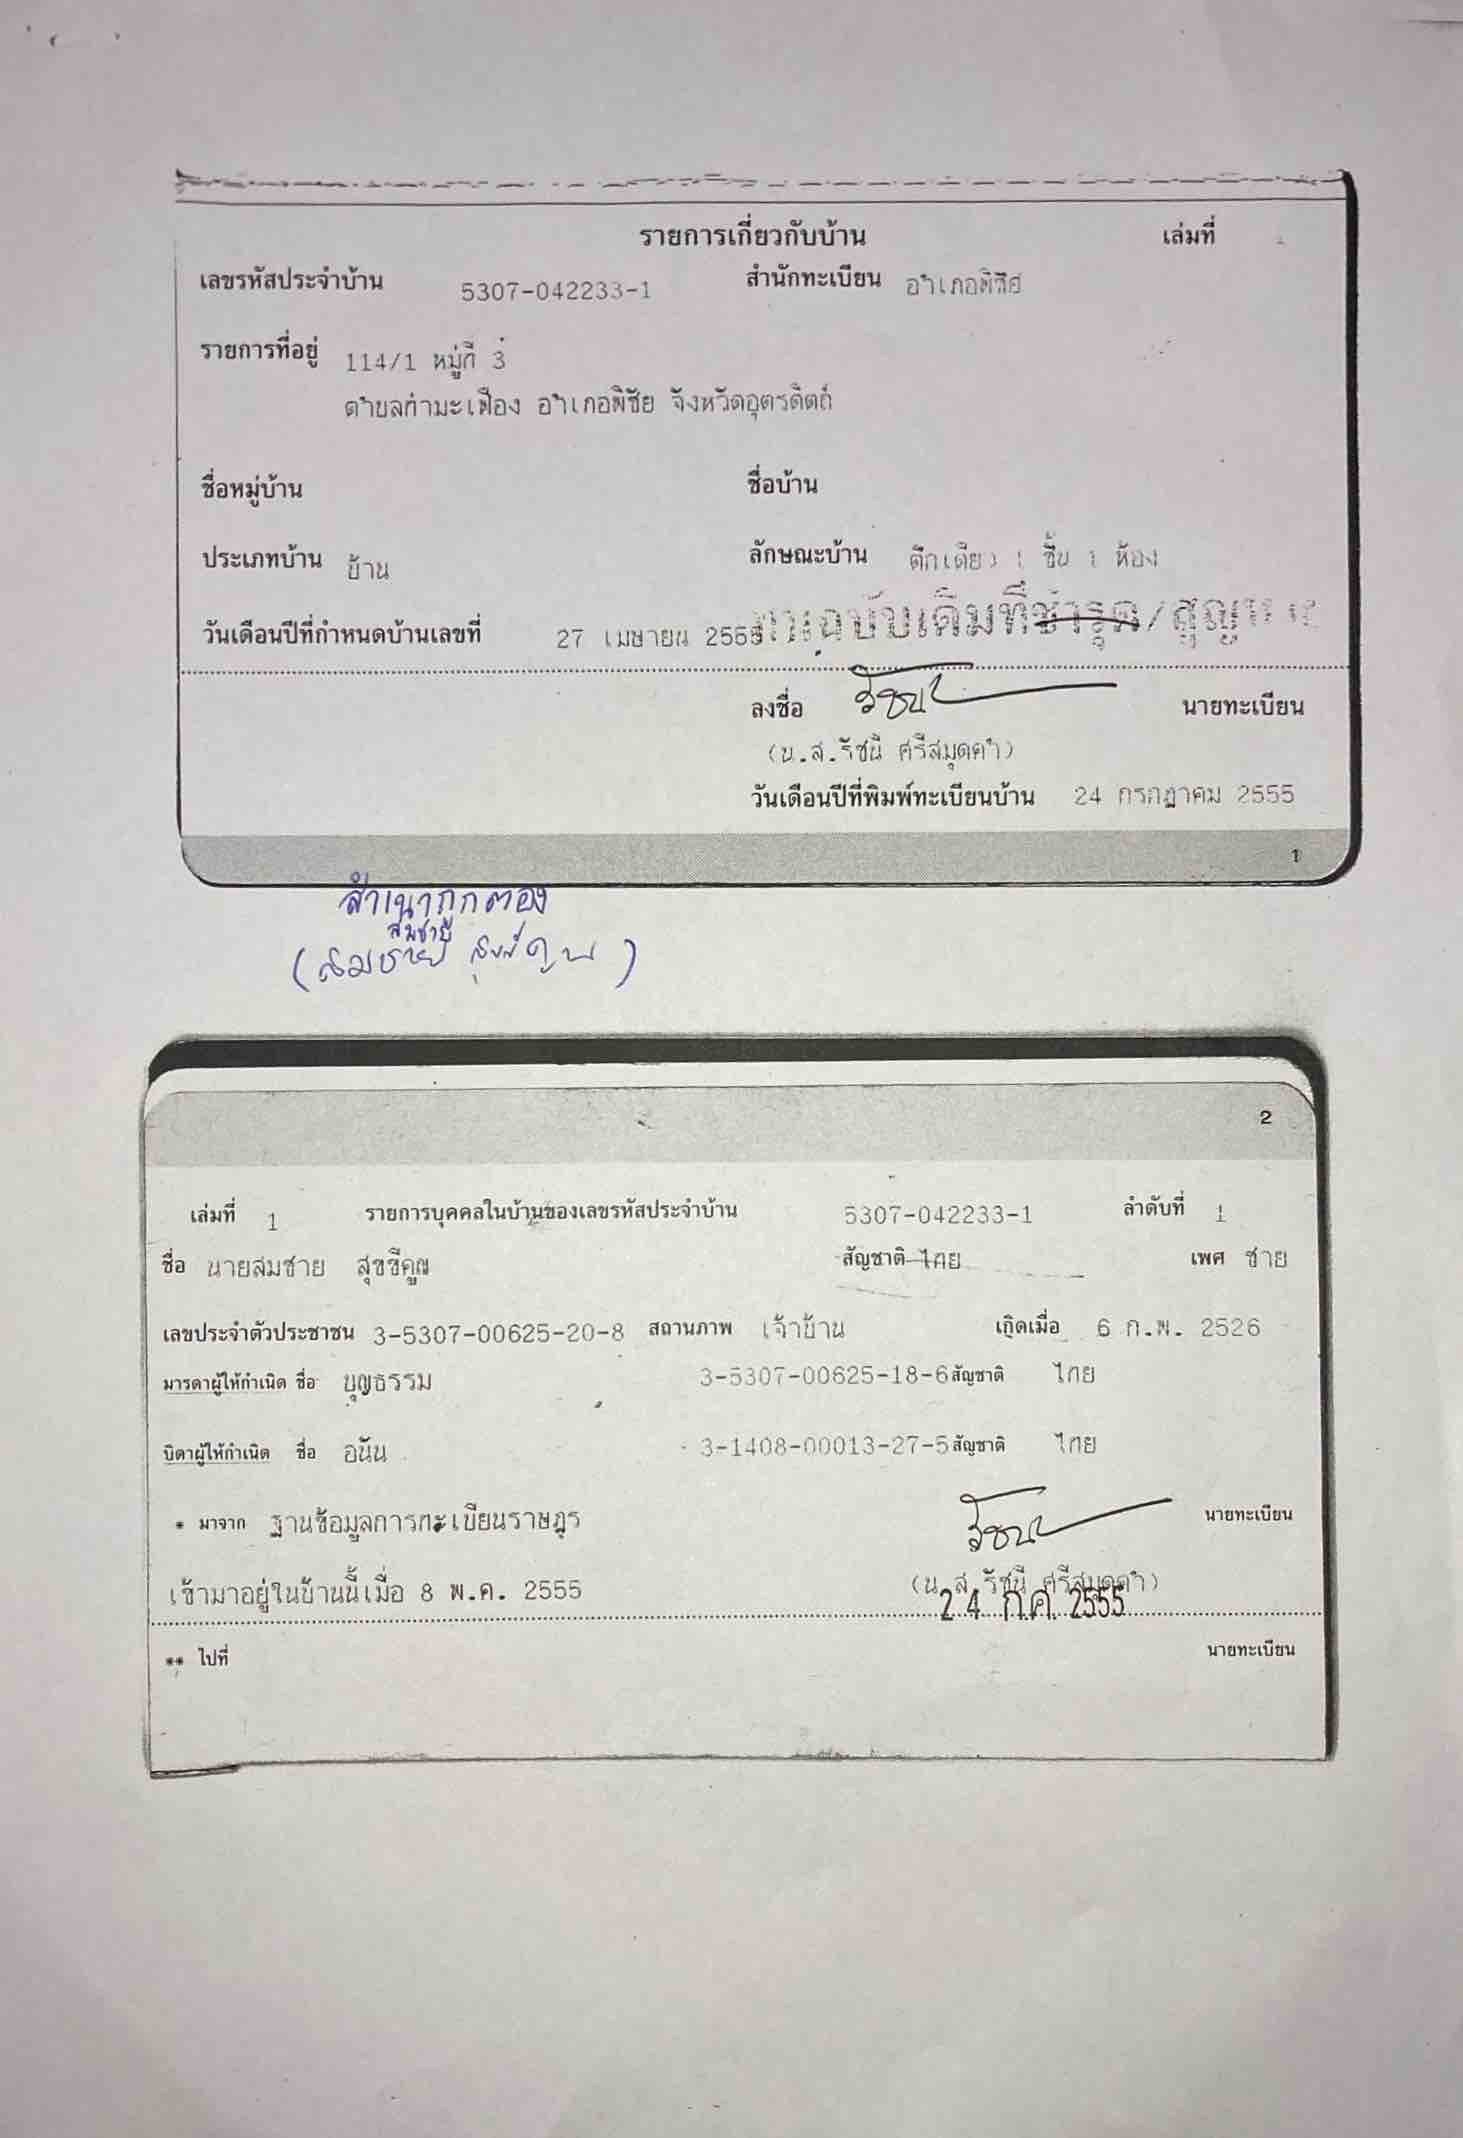 รายการเกี่ยวกับบ้าน เล่มที่ 1
เลขรหัสประจำบ้าน 5307-042233-1 สำนักทะเบียน อำเภอพิชัย
รายการที่อยู่ 114/1 หมู่ที่ 3
ตำบลท่ามะเฟือง อำเภอพิชัย จังหวัดอุตรดิตถ์
ชื่อหมู่บ้าน ชื่อบ้าน
ประเภทบ้าน บ้าน ลักษณะบ้าน ตึกเดี่ยว 1 ชั้น 1 ห้อง
วันเดือนปีที่กำหนดบ้านเลขที่ 27 เมษายน แทนฉบับเดิมที่ชำรุด/สูญหาย
ลงชื่อ รัชนี นายทะเบียน
(น.ส.รัชนี ศรีสมุดคำ)
วันเดือนปีที่พิมพ์ทะเบียนบ้าน 24 กรกฎาคม 2555
1
สำเนาถูกต้อง
สมชาย
(สมชาย สุขขีคูณ)
2
เล่มที่ 1 รายการบุคคลในบ้านของเลขรหัสประจำบ้าน 5307-042233-1 ลำดับที่ 1
ชื่อ นายสมชาย สุขขีคูณ สัญชาติ ไทย เพศ ชาย
เลขประจำตัวประชาชน 3-5307-00625-20-8 สถานภาพ เจ้าบ้าน เกิดเมื่อ 6 ก.พ. 2526
มารดาผู้ให้กำเนิด ชื่อ บุญธรรม 3-5307-00625-18-6 สัญชาติ ไทย
บิดาผู้ให้กำเนิด ชื่อ อนัน 3-1408-00013-27-5 สัญชาติ ไทย
* มาจาก ฐานข้อมูลการทะเบียนราษฎร รัชนี นายทะเบียน
เข้ามาอยู่ในบ้านนี้เมื่อ 8 พ.ค. 2555 (น.ส.รัชนี ศรีสมุดคำ)
24 ก.ค. 2555
** ไปที่ นายทะเบียน